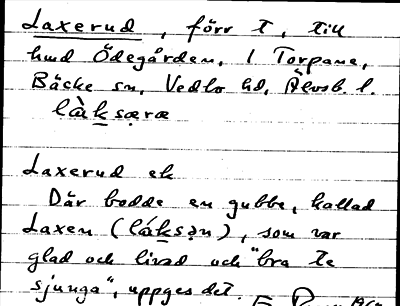 Laxerud, förr t, till
hmd Ödegården, 1 Torpane,
Bäcke sn, Vedbo hd, Älvsb. l.
làksæræ
Laxerud ek
Där bodde en gubbe, kallad
Laxen (láksən), som var
glad och livad och "bra te
sjunga", uppges det.